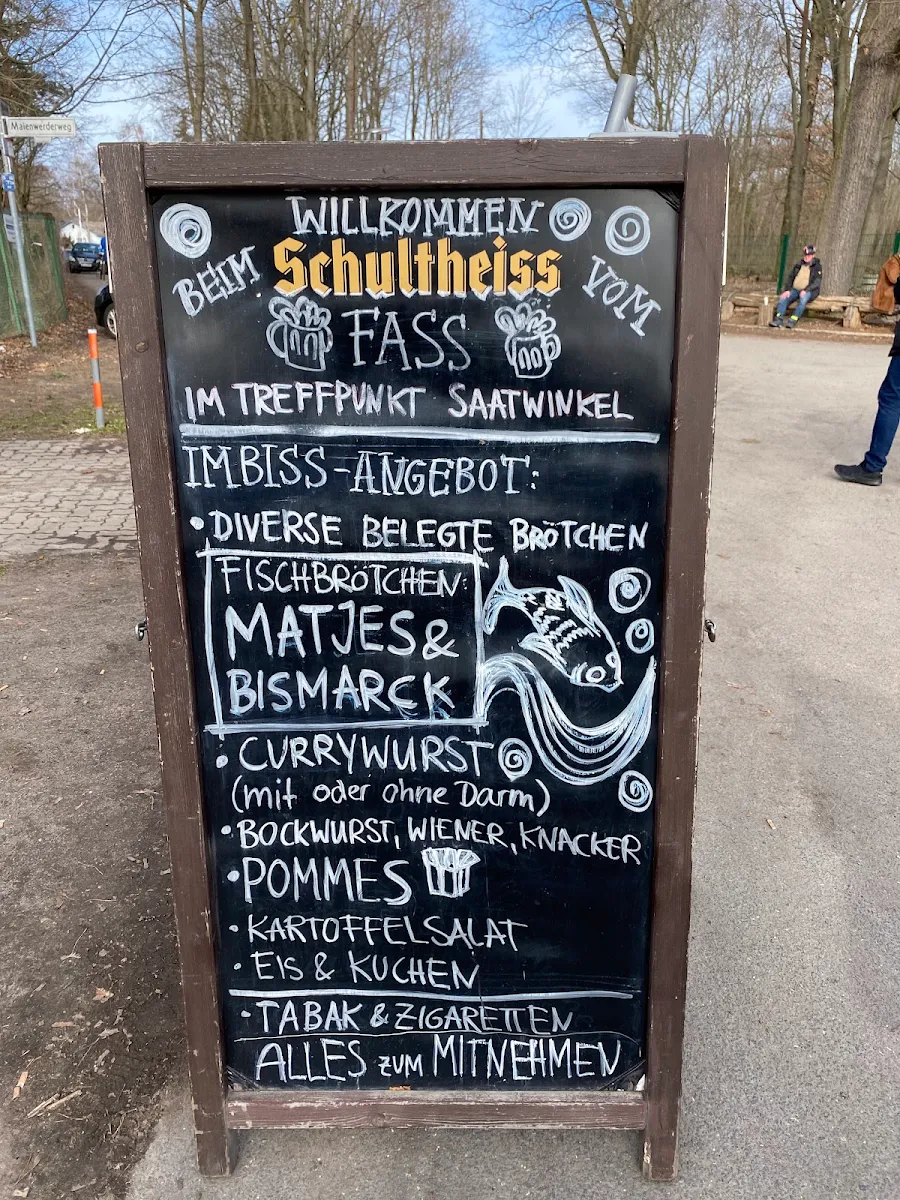 Maienwerderweg
WILLKOMMEN
BEIM Schultheiss VOM
FASS
IM TREFFPUNKT SAATWINKEL
IMBISS-ANGEBOT:
• DIVERSE BELEGTE BRÖTCHEN
FISCHBRÖTCHEN:
MATJES &
BISMARCK
• CURRYWURST
(mit oder ohne Darm)
• BOCKWURST, WIENER, KNACKER
• POMMES
• KARTOFFELSALAT
• EIS & KUCHEN
• TABAK & ZIGARETTEN
ALLES ZUM MITNEHMEN